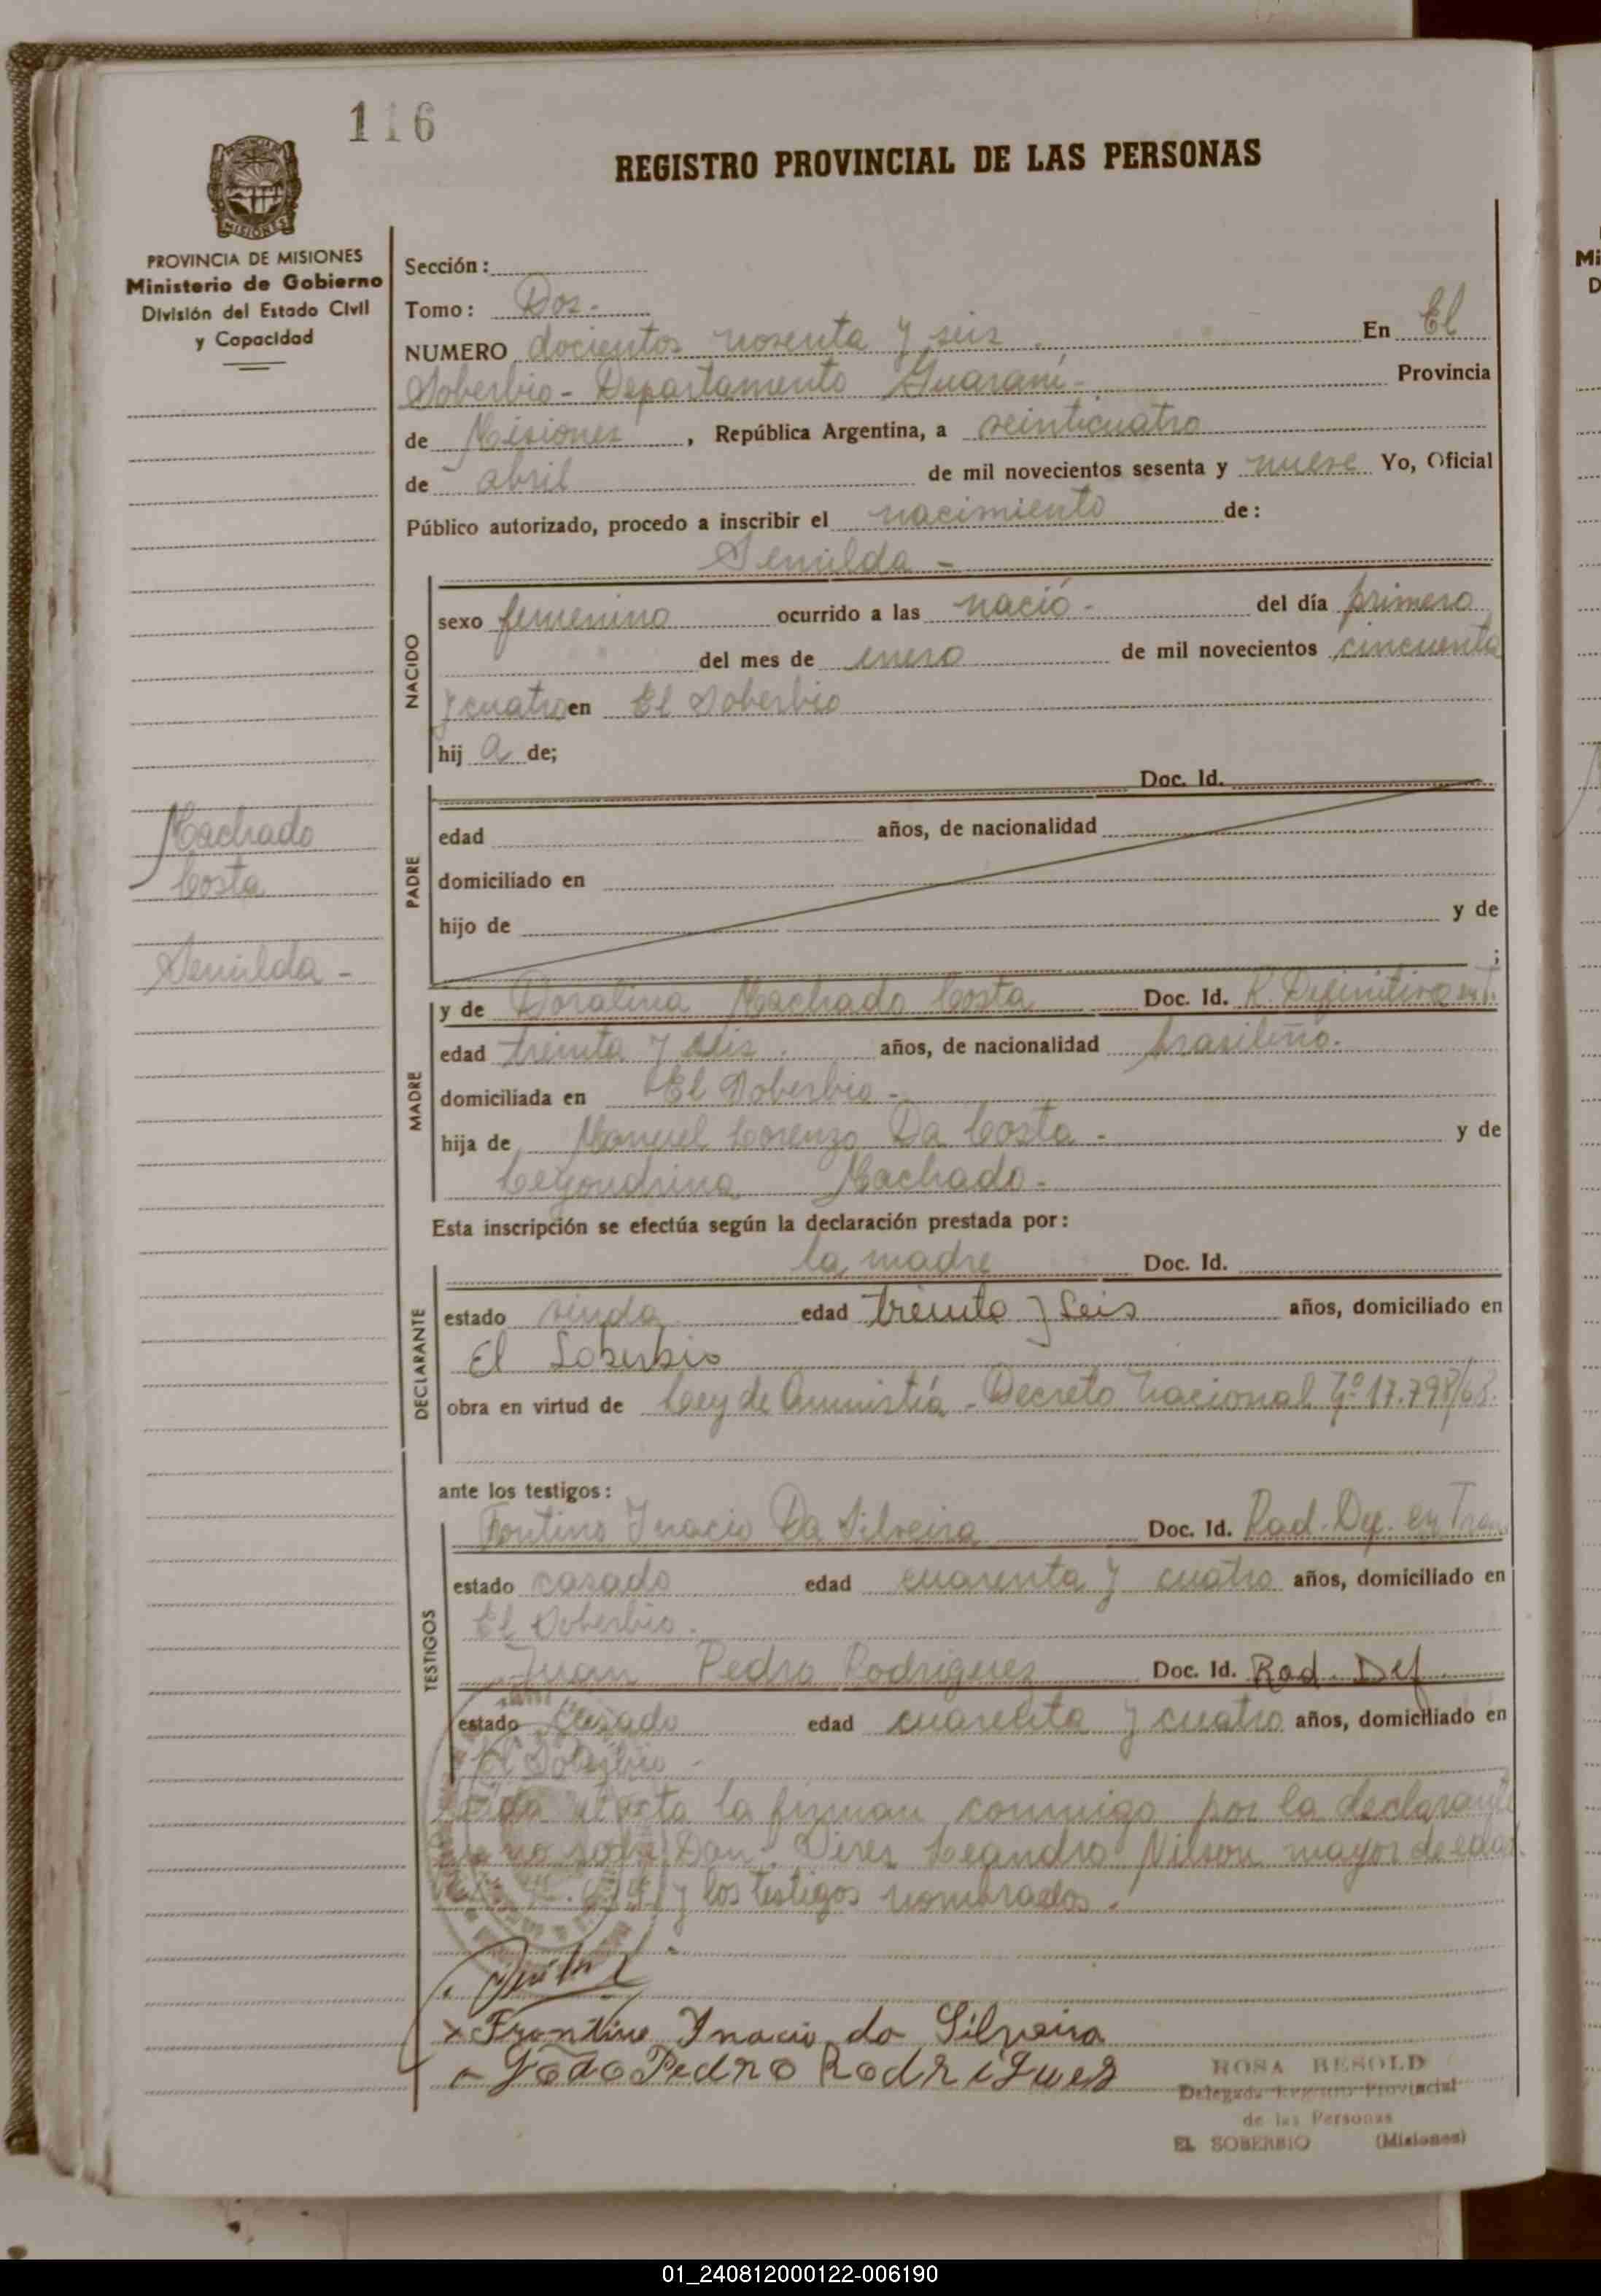 116
REGISTRO PROVINCIAL DE LAS PERSONAS
MISIONES
PROVINCIA DE MISIONES
Ministerio de Gobierno
División del Estado Civil
y Capacidad
Sección:
Tomo: Dos-
NUMERO docientos nosenta y seis . En El
Soberbio - Departamento Guaraní - Provincia
de Misiones, República Argentina, a veinticuatro
de abril de mil novecientos sesenta y nueve Yo, Oficial
Público autorizado, procedo a inscribir el nacimiento de:
NACIDO
Senilda -
sexo femenino ocurrido a las nació - del día primero
del mes de enero de mil novecientos cincuenta
y cuatro en El Soberbio
hij a de;
PADRE
Doc. Id.
edad años, de nacionalidad
domiciliado en
hijo de y de
;
Machado
Costa
Senilda -
MADRE
y de Doralina Machado Costa Doc. Id. R. Definitiva en T.
edad treinta y seis . años, de nacionalidad brasileña.
domiciliada en El Soberbio -
hija de Manuel Lorenzo Da Costa - y de
Machado -
Esta inscripción se efectúa según la declaración prestada por:
DECLARANTE
la madre Doc. Id.
estado viuda edad treinta y seis años, domiciliado en
El Soberbio
obra en virtud de Ley de Amnistía - Decreto Nacional Nº 17.798/68.
ante los testigos:
TESTIGOS
Inacio Da Silveira Doc. Id. Rad. Def. en Tran.
estado casado edad cuarenta y cuatro años, domiciliado en
El Soberbio.
Juan Pedro Rodriguez Doc. Id. Rad. Def
estado casado edad cuarenta y cuatro años, domiciliado en
El Soberbio -
Leida el acta la firman conmigo por la declarante
que no sabe Don Leandro Nilson mayor de edad
y los testigos nombrados.
x Frontino Inacio da Silveira
João Pedro Rodrigues
ROSA BESOLD
Delegada Registro Provincial
de las Personas
EL SOBERBIO (Misiones)
01_240812000122-006190